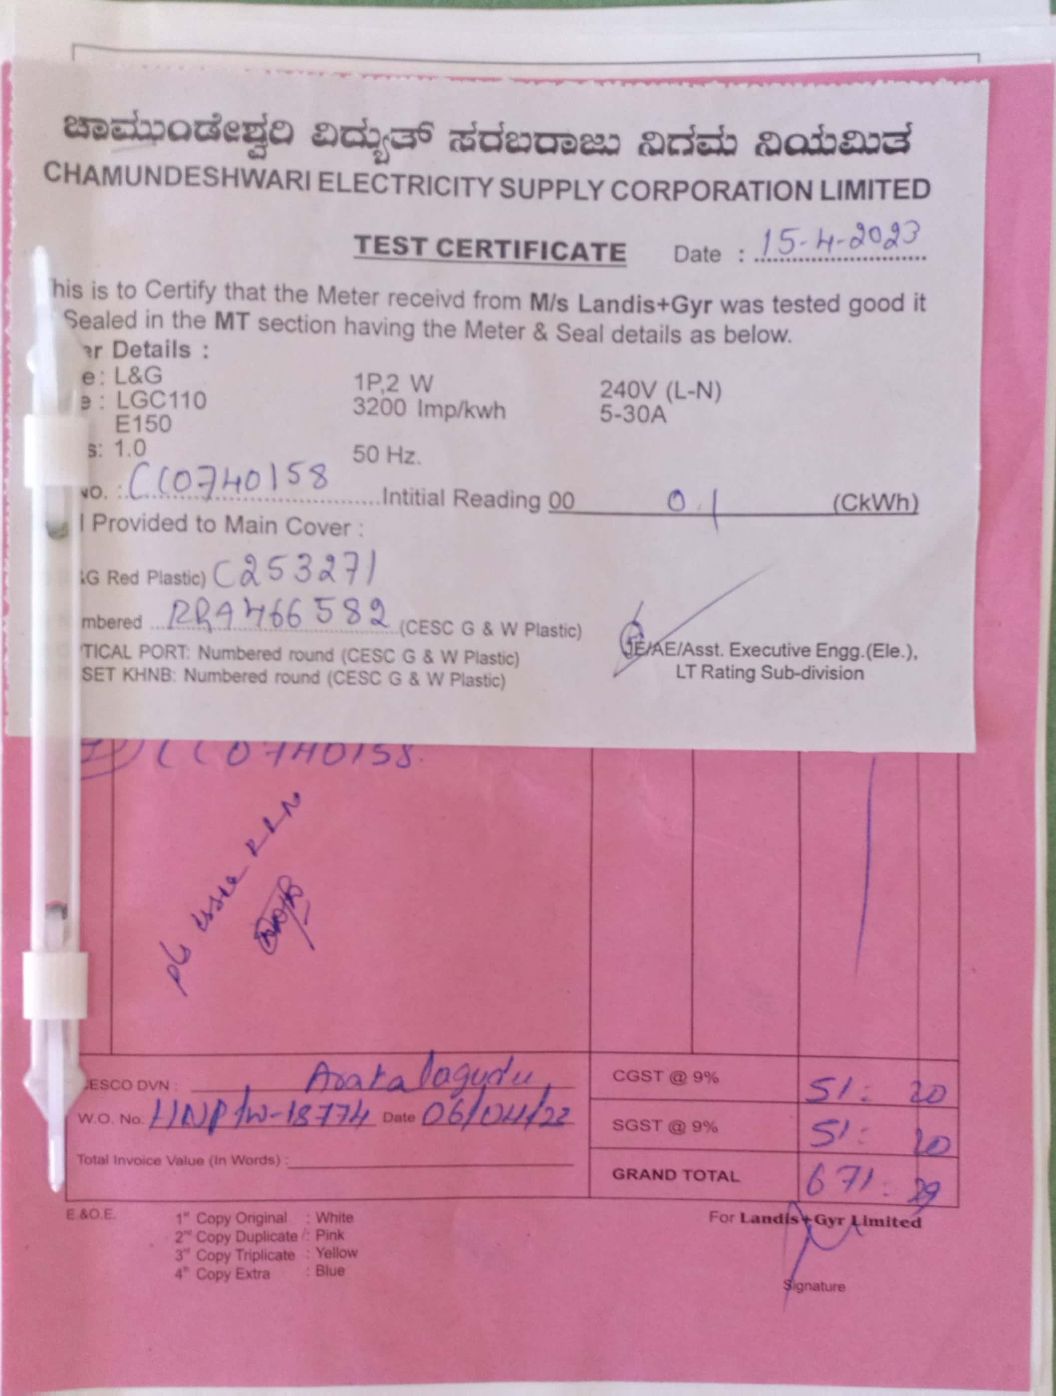 ಚಾಮುಂಡೇಶ್ವರಿ ವಿದ್ಯುತ್ ಸರಬರಾಜು ನಿಗಮ ನಿಯಮಿತ
CHAMUNDESHWARI ELECTRICITY SUPPLY CORPORATION LIMITED
TEST CERTIFICATE Date : 15-4-2023
his is to Certify that the Meter receivd from M/s Landis+Gyr was tested good it
Sealed in the MT section having the Meter & Seal details as below.
er Details :
e: L&G 1P,2 W 240V (L-N)
e : LGC110 3200 Imp/kwh 5-30A
E150
s: 1.0 50 Hz.
NO. : CC0740158 Intitial Reading 00 0.1 (CkWh)
l Provided to Main Cover :
G Red Plastic) C253271
mbered RR9466582 (CESC G & W Plastic)
TICAL PORT: Numbered round (CESC G & W Plastic)
SET KHNB: Numbered round (CESC G & W Plastic)
JE/AE/Asst. Executive Engg.(Ele.),
LT Rating Sub-division
CC0740158.
CESCO DVN : CGST @ 9% 51: 20
W.O. No. Date 06/04/22 SGST @ 9% 51: 20
Total Invoice Value (In Words) : GRAND TOTAL 671: 29
E.&O.E.
1st Copy Original : White
2nd Copy Duplicate : Pink
3rd Copy Triplicate : Yellow
4th Copy Extra : Blue
For Landis+Gyr Limited
Signature